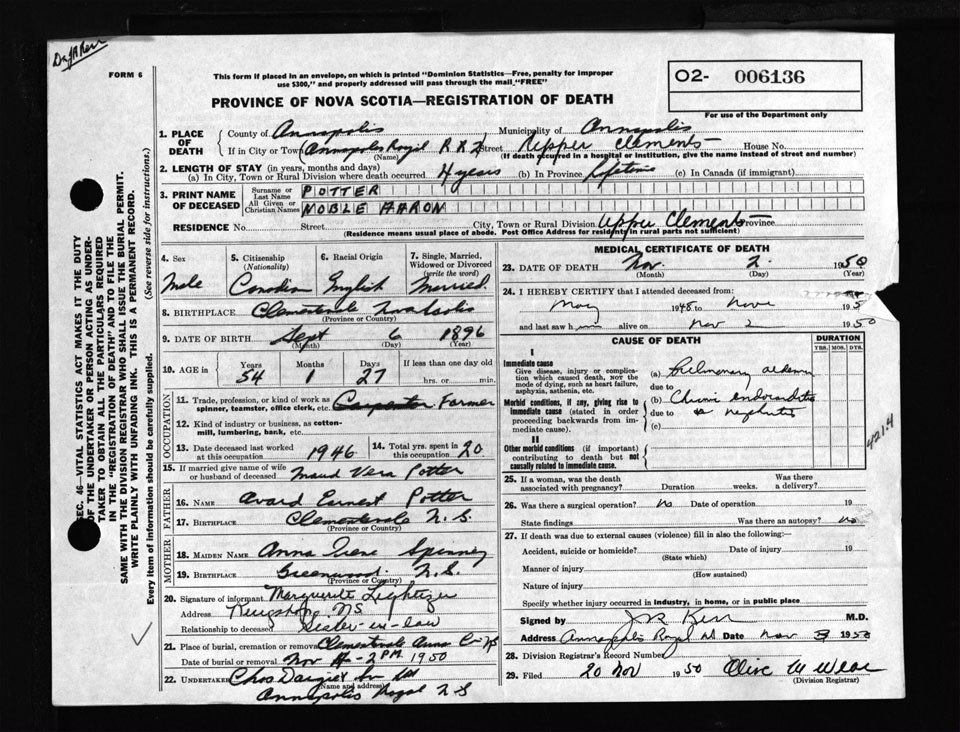 Dr J R Kerr
FORM 6
This form if placed in an envelope, on which is printed "Dominion Statistics—Free, penalty for improper
use $300," and properly addressed will pass through the mail "FREE"
O2- 006136
For use of the Department only
PROVINCE OF NOVA SCOTIA—REGISTRATION OF DEATH
1. PLACE OF DEATH
County of Annapolis Municipality of Annapolis
If in City or Town (Annapolis Royal R.R.2) Street Upper Clements House No.
(Name) (If death occurred in a hospital or institution, give the name instead of street and number)
2. LENGTH OF STAY (in years, months and days)
(a) In City, Town or Rural Division where death occurred 4 years (b) In Province Lifetime (c) In Canada (if immigrant)
3. PRINT NAME OF DECEASED
Surname or Last Name POTTER
All Given or Christian Names NOBLE AARON
RESIDENCE No. Street City, Town or Rural Division Upper Clements Province
(Residence means usual place of abode. Post Office Address for residents in rural parts not sufficient)
4. Sex 5. Citizenship (Nationality) 6. Racial Origin 7. Single, Married, Widowed or Divorced (write the word)
Male Canadian English Married.
8. BIRTHPLACE Clementsvale Nova Scotia
(Province or Country)
9. DATE OF BIRTH Sept 6 1896
(Month) (Day) (Year)
10. AGE in Years Months Days If less than one day old
54 1 27 hrs. or min.
OCCUPATION
11. Trade, profession, or kind of work as
spinner, teamster, office clerk, etc. Carpenter Farmer
12. Kind of industry or business, as cotton-
mill, lumbering, bank, etc.
13. Date deceased last worked at this occupation 1946 14. Total yrs. spent in this occupation 20
15. If married give name of wife
or husband of deceased Maud Vera Potter
FATHER
16. NAME Avard Ernest Potter
17. BIRTHPLACE Clementsvale N.S.
(Province or Country)
MOTHER
18. MAIDEN NAME Anna Irene Spinney
19. BIRTHPLACE Greenwood. N.S.
(Province or Country)
20. Signature of informant Marguerite
Address NS
Relationship to deceased Sister-in-law
21. Place of burial, cremation or removal Clementsvale Anna Co NS
Date of burial or removal Nov 4-2 PM 1950
22. UNDERTAKER Chas Dargie
(Name and address)
Annapolis Royal N S
MEDICAL CERTIFICATE OF DEATH
23. DATE OF DEATH Nov. 2. 1950
(Month) (Day) (Year)
24. I HEREBY CERTIFY that I attended deceased from:
May 1948 to Nov 195
and last saw him alive on Nov 2 1950
CAUSE OF DEATH
DURATION
YRS. MOS. DYS.
I
Immediate cause
Give disease, injury or complica-
tion which caused death, NOT the
mode of dying, such as heart failure,
asphyxia, asthenia, etc.
(a) Pulmonary oedema
due to
Morbid conditions, if any, giving rise to
immediate cause (stated in order
proceeding backwards from im-
mediate cause).
(b) Chronic endocarditis
due to nephritis
(c)
II
Other morbid conditions (if important)
contributing to death but not
causally related to immediate cause.
4214
25. If a woman, was the death Was there
associated with pregnancy? Duration weeks. a delivery?
26. Was there a surgical operation? No Date of operation 19
State findings Was there an autopsy? No
27. If death was due to external causes (violence) fill in also the following:
Accident, suicide or homicide? Date of injury 19
(State which)
Manner of injury
(How sustained)
Nature of injury
Specify whether injury occurred in industry, in home, or in public place
Signed by J R Kerr M.D.
Address Annapolis Royal NS Date Nov 3 1950
28. Division Registrar's Record Number
29. Filed 20 Nov 1950 Olive M
(Division Registrar)
SEC. 46—VITAL STATISTICS ACT MAKES IT THE DUTY
OF THE UNDERTAKER OR PERSON ACTING AS UNDER-
TAKER TO OBTAIN ALL THE PARTICULARS REQUIRED
IN THE "REGISTRATION OF DEATH" AND TO FILE THE
SAME WITH THE DIVISION REGISTRAR WHO SHALL ISSUE THE BURIAL PERMIT.
WRITE PLAINLY WITH UNFADING INK. THIS IS A PERMANENT RECORD.
Every item of information should be carefully supplied. (See reverse side for instructions.)